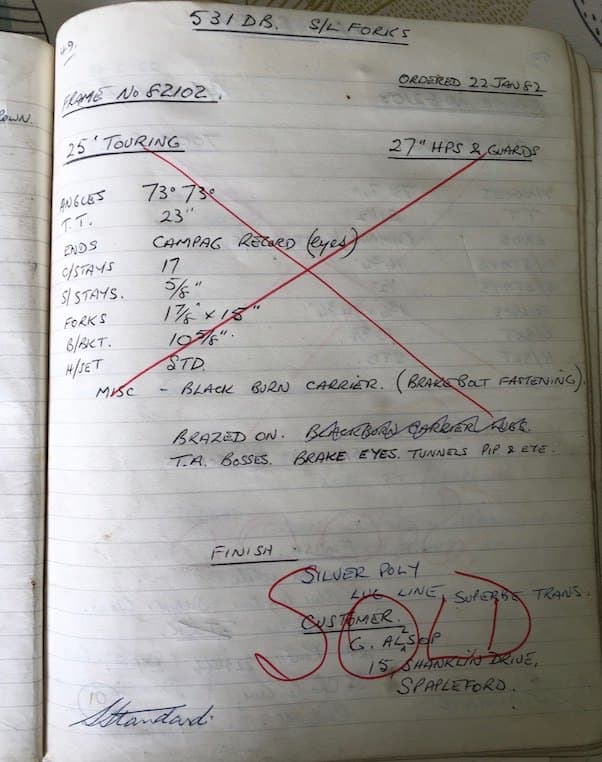 531 DB. S/L FORKS
49.
ORDERED 22 JAN 82
FRAME No 82102.
25" TOURING
27" HPS & GUARDS
ANGLES 73° 73°
T.T. 23"
ENDS CAMPAG RECORD (eyes)
C/STAYS 17
S/STAYS. 5/8"
FORKS 1 7/8" x 15"
B/BKT. 10 5/8".
H/SET STD.
MISC - BLACK BURN CARRIER. (BRAKE BOLT FASTENING).
BRAZED ON. BLACKBURN CARRIER
T.A. BOSSES. BRAKE EYES. TUNNELS PIP & EYE.
FINISH.
SILVER POLY
LUG LINE, SUPERBE TRANS.
CUSTOMER.
G. ALSOP
15, SHANKLIN DRIVE,
SPAPLEFORD.
SOLD